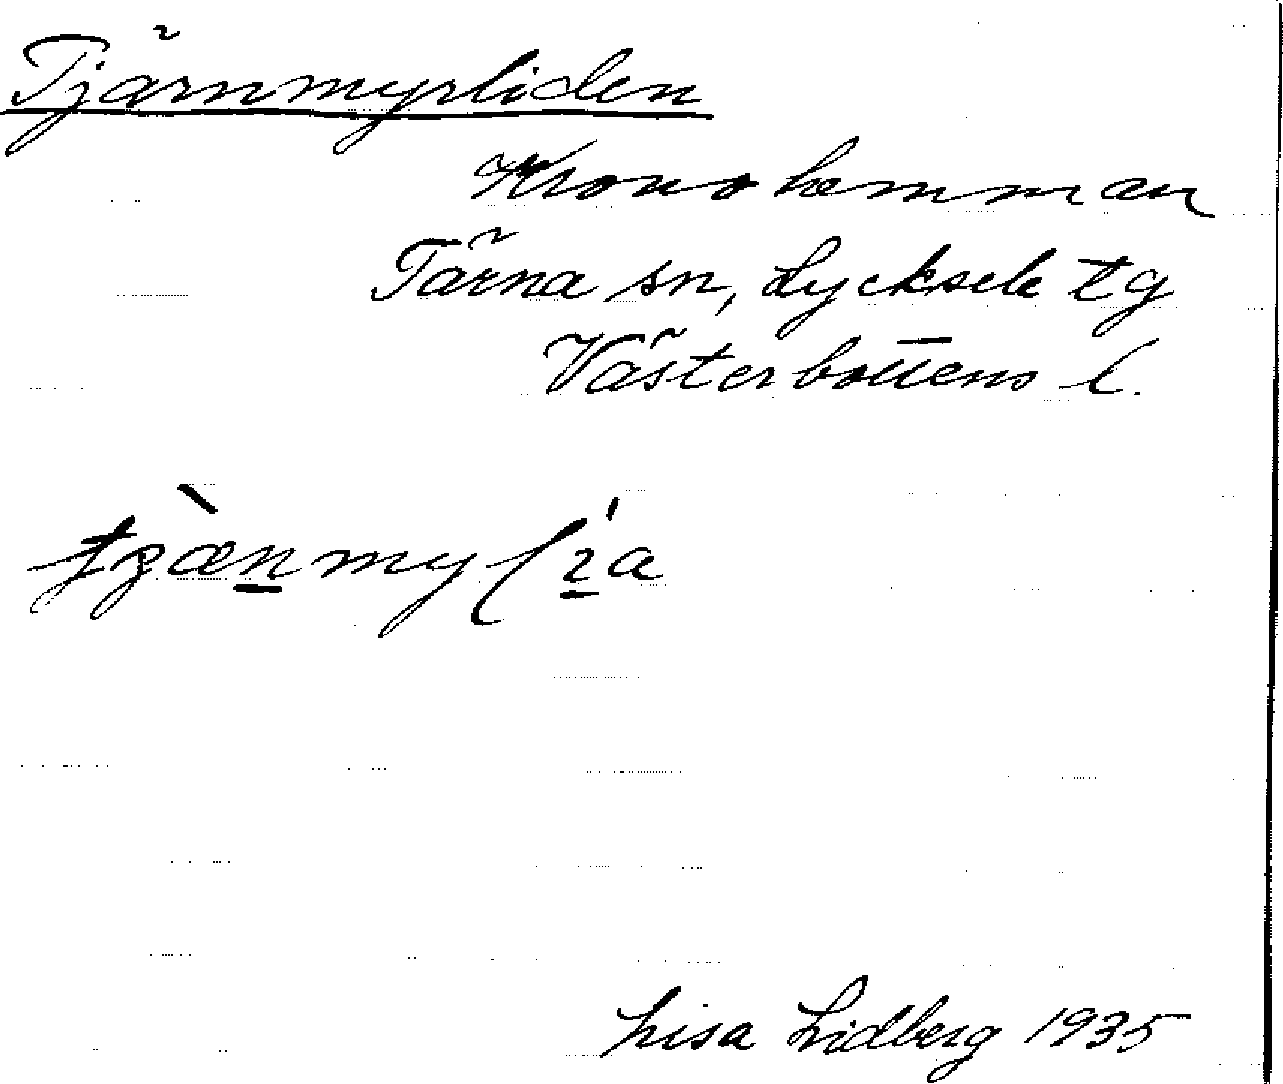 Tjärnmyrliden
Kronohemman
Tärna sn, Lycksele tg
Västerbottens l.
Lisa Lidberg 1935